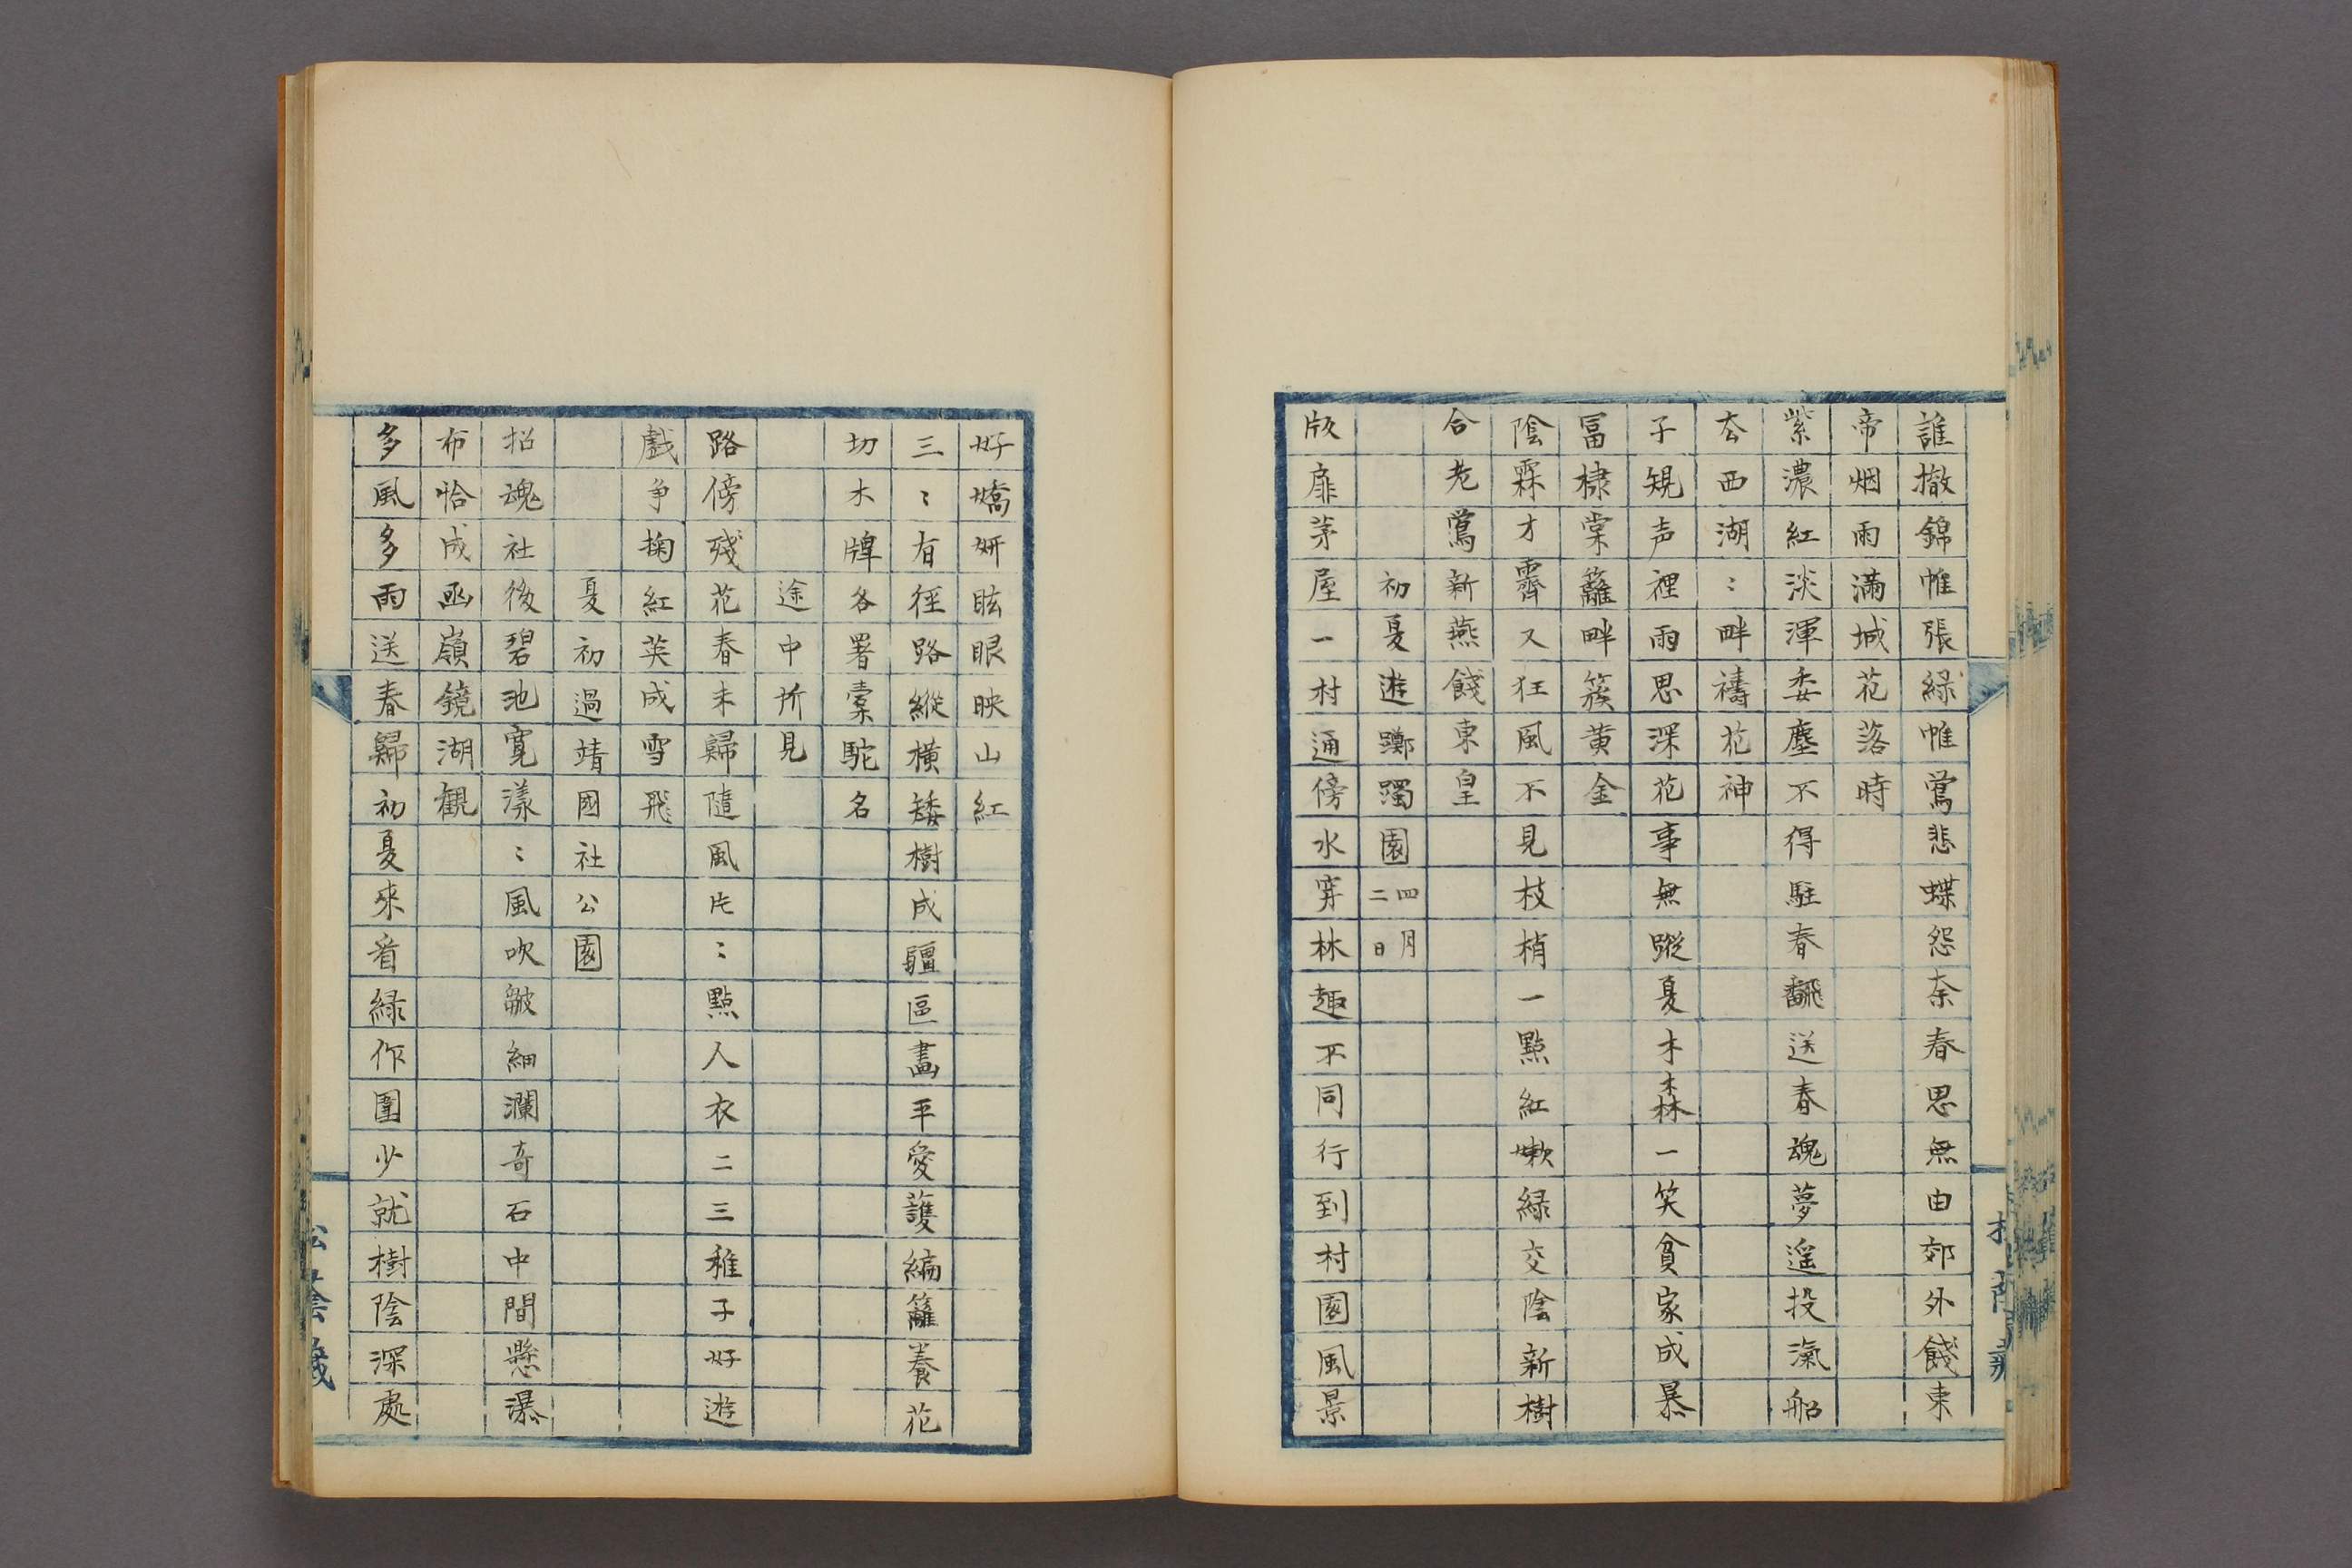 誰撤錦帷張緑帷鶯悲蝶怨奈春思無由郊外餞東
帝烟雨滿城花落時
紫濃紅淡渾委塵不得駐春飜送春魂夢遥投瀛船
去西湖〻畔禱花神
子規声裡雨思深花事無蹤夏木森一笑貧家成暴
冨棣棠籬畔簇黄金
陰霖才霽又狂風不見枝梢一點紅嫩緑交陰新樹
合老鶯新燕餞東皇
初夏遊躑躅園四月二日
版扉茅屋一村通傍水穿林趣不同行到村園風景
好嬌妍眩眼映山紅
三〻有径路縱横矮樹成疆區畵平愛護編籬養花
切木牌各署槖駝名
途中所見
路傍殘花春未歸隨風片〻點人衣二三稚子好遊
戯争掬紅英成雪飛
夏初過靖國社公園
招魂社後碧池寛漾〻風吹皺細瀾奇石中間懸瀑
布恰成函嶺鏡湖観
多風多雨送春歸初夏來看緑作圍少就樹陰深處